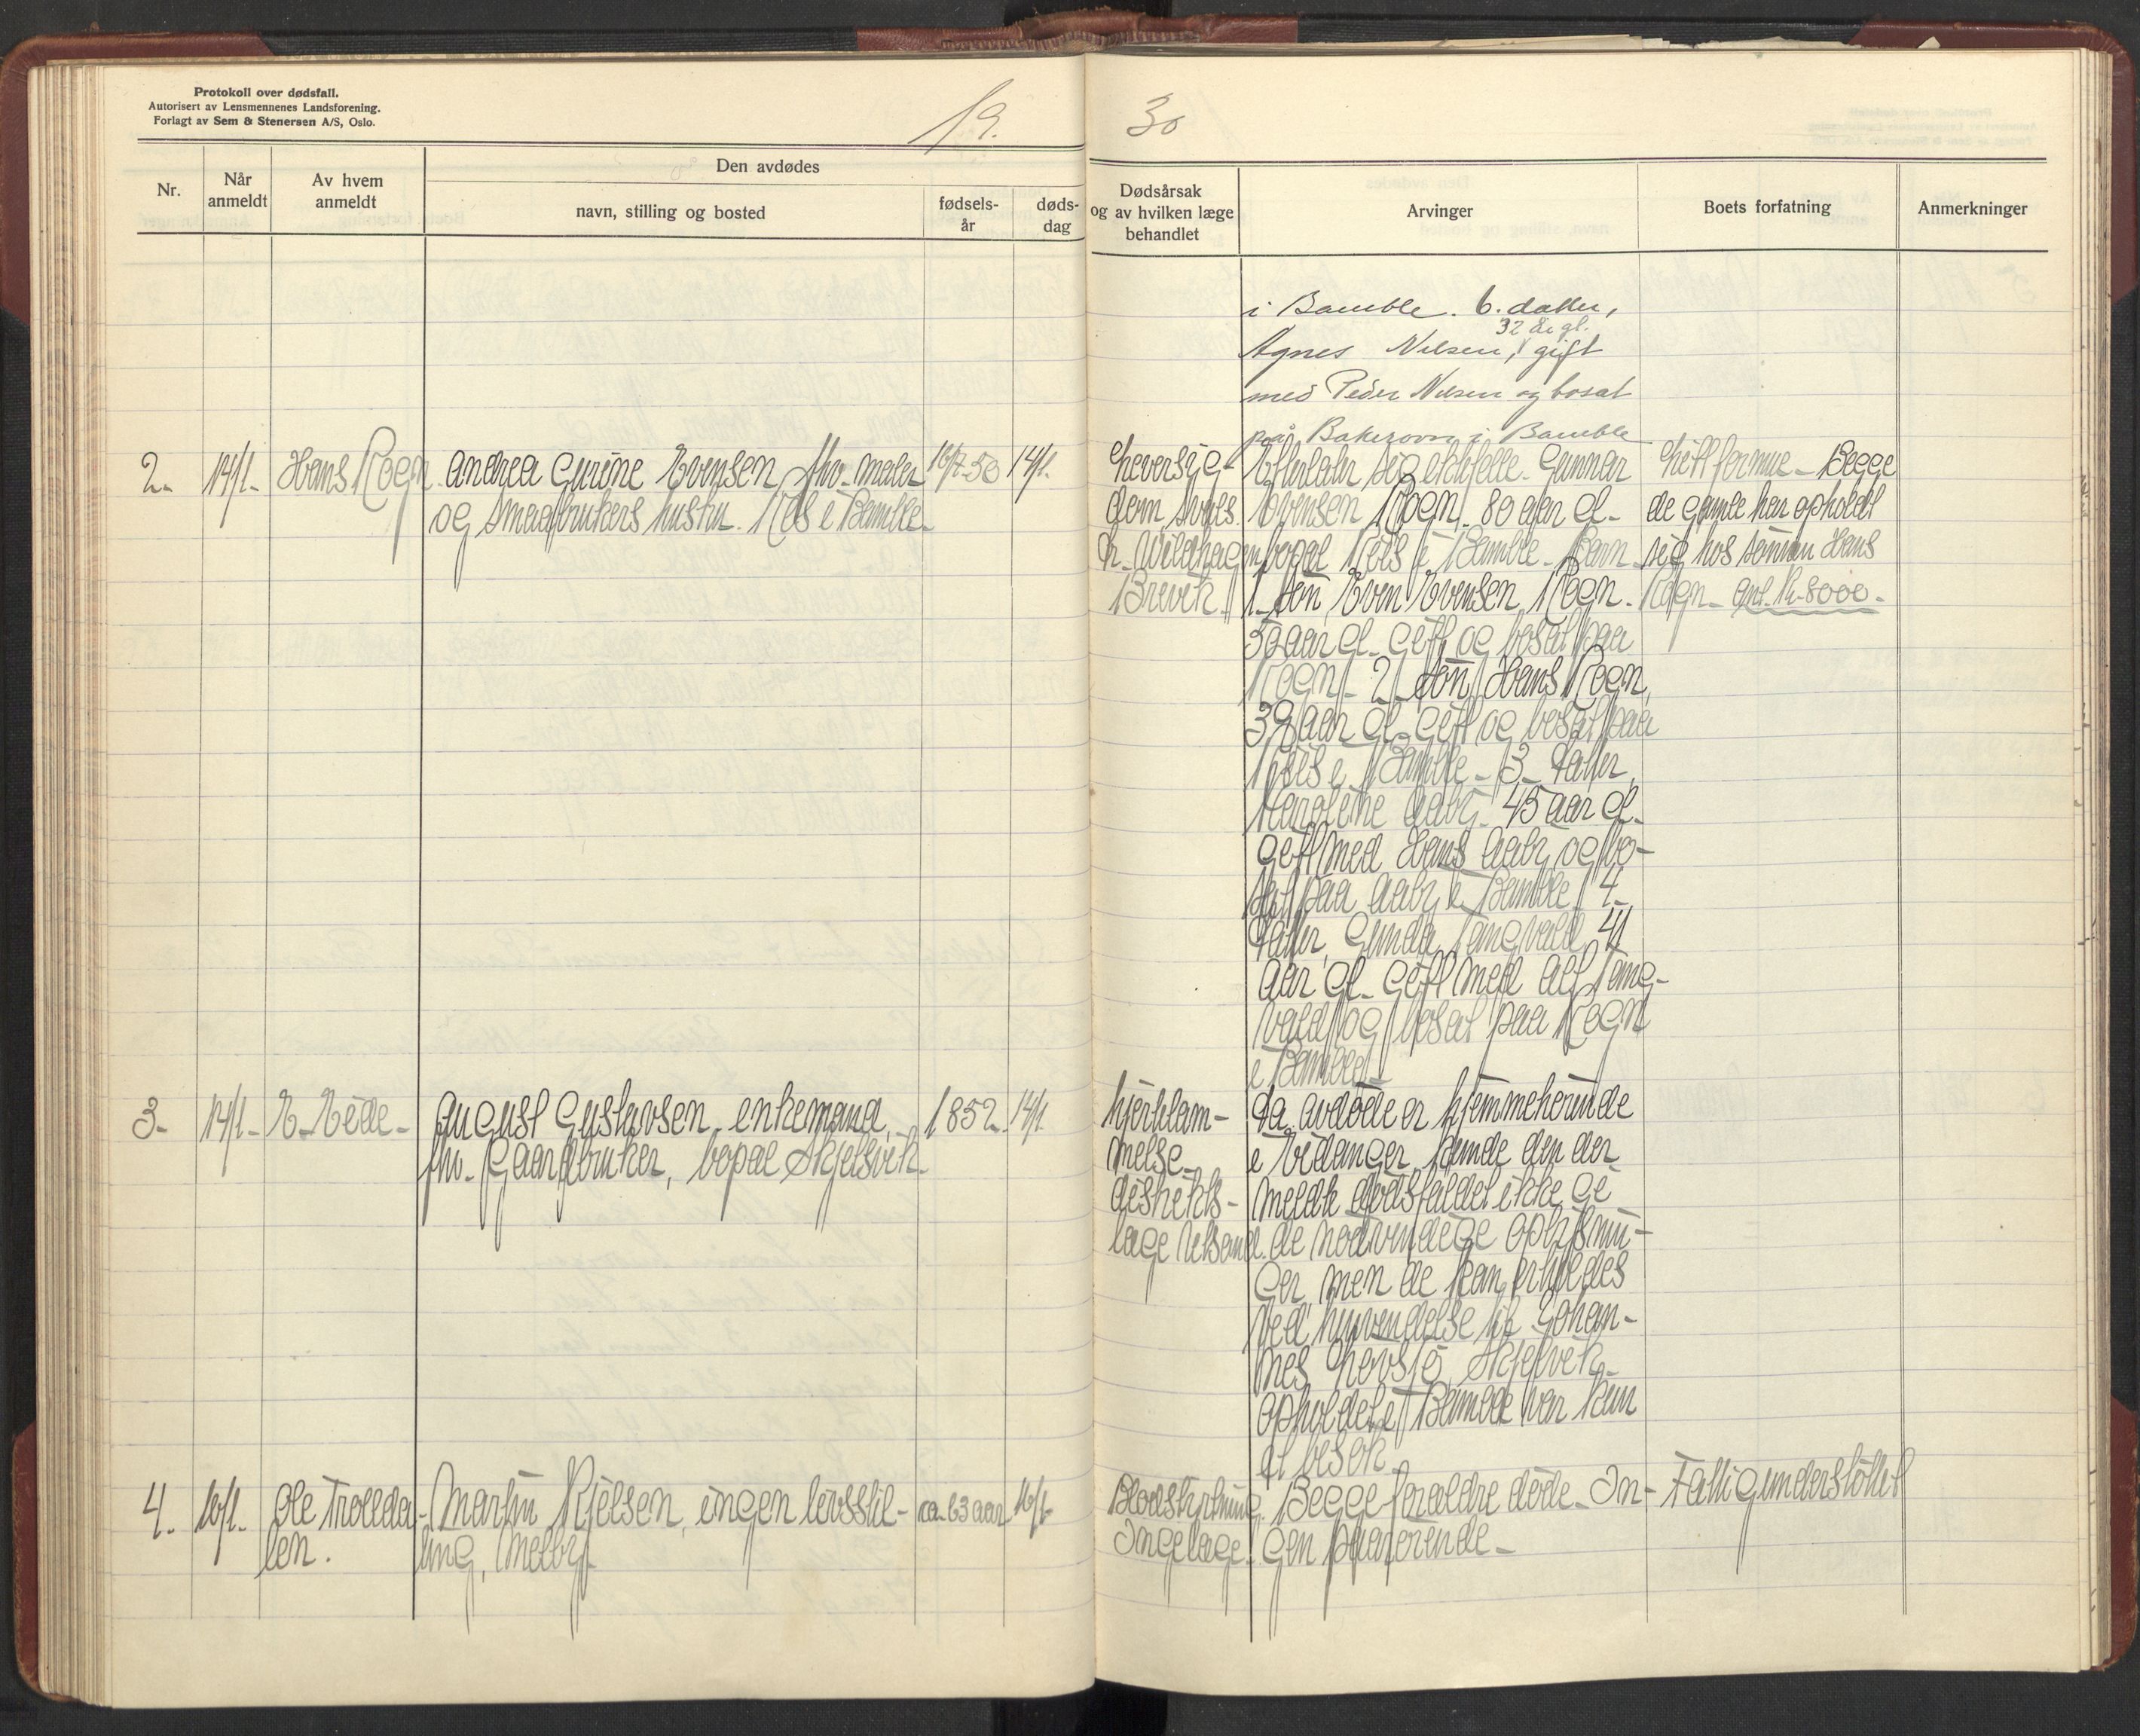 Protokoll over dødsfall.
Autorisert av Lensmennenes Landsforening.
Forlagt av Sem & Stenersen A/S, Oslo.
19.
30
Nr.
Når anmeldt
Av hvem anmeldt
Den avdødes
navn, stilling og bosted
fødsels-år
døds-dag
Dødsårsak
og av hvilken læge
behandlet
Arvinger
Boets forfatning
Anmerkninger
i Bamble. 6. datter,
32 år gl.
Agnes Nilsen, gift
med Peder Nilsen og bosat
på Bakerovn i Bamble
2. 14/1. Hans Rogn. Andrea Gurine Evensen, fhv. maler
og smaabrukers hustru. i Bamble.
14/1.
Leversyg-
dom,
Dr. Wildhagen
Brevik.
Efterlater sig ektefelle Gunnar
Evensen Rogn. 80 aar gl.
bopæl i Bamble. Barn
1. søn Even Evensen Rogn.
50 aar gl. gift og bosat paa
Rogn. 2. søn Hans Rogn,
39 aar gl. gift og bosat paa
i Bamble. 3. datter,
Karoline Aaby. 45 aar gl.
gift med Hans Aaby og bo-
sat paa Aaby i Bamble. 4.
datter, Gunda Tangvald 41
aar gl. gift med Alf Tang-
vald og bosat paa Rogn
i Bamble.
Litt formue. Begge
de gamle har opholdt
sig hos sønnen Hans
Rogn. Ant. kr. 8000.-
3. 14/1. E. Eide. August Gustavsen, enkemand,
fhv. Gaardbruker, bopæl Skjelsvik.
1852. 14/1.
Hjertelam-
melse.
distrikts-
læge
Da avdøde er hjemmehørende
i Eidanger kunde den der
meldte dødsfaldet ikke gi
de nødvendige oplysnin-
ger, men de kan erholdes
ved henvendelse til Johan-
nes Skjelsvik.
Opholdet i Bamble var kun
et besøk.
4. 16/1. Ole Trollda-
len.
Martin Kjelsen, ingen livsstil-
ling, Melby.
ca. 63 aar 16/1.
Blodstyrtning.
Inge læge.
Begge forældre døde. In-
gen paarørende.
Fattigunderstøttet